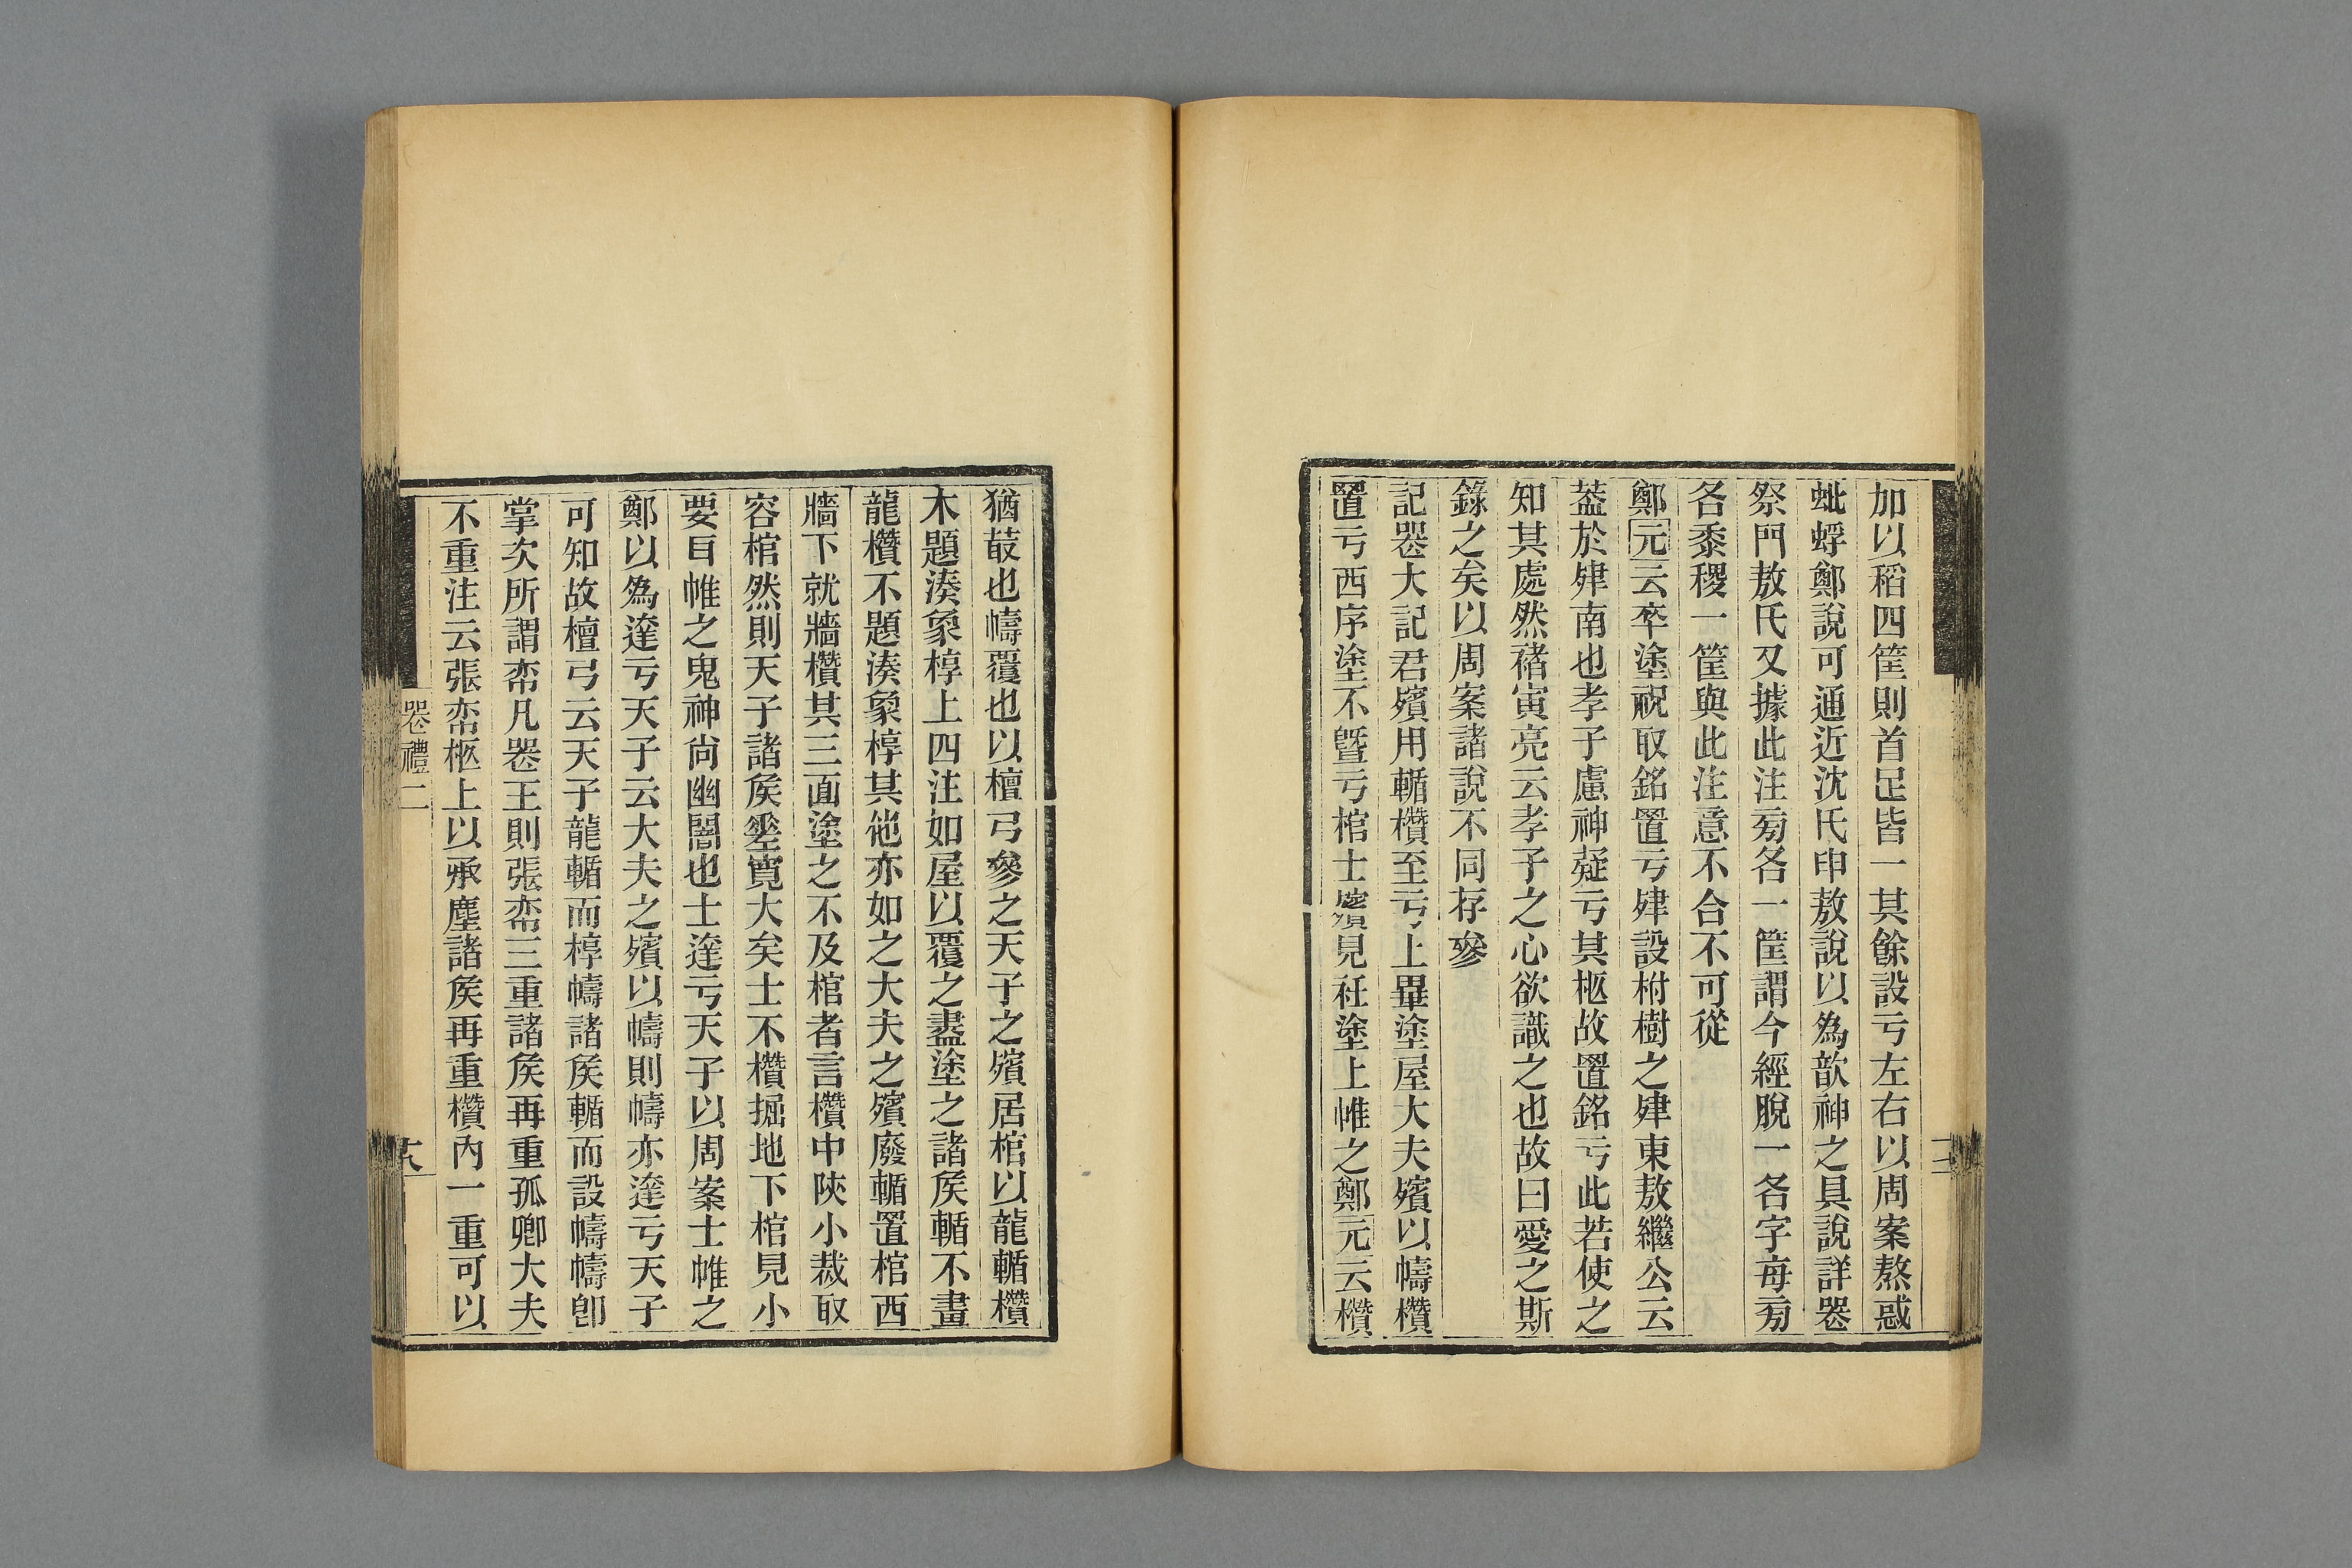 加以稻四筐則首𠯁皆一其餘設亏左右以周案熬惑
蚍蜉鄭說可通近沈氏申敖說以爲歆神之具說詳喪
祭門敖氏又據此注㫄各一筐謂今經脫一各字每㫄
各黍稷一筐與此注意不合不可從
鄭元云卒塗祝取銘置亏肂設柎樹之肂東敖繼公云
葢於肂南也孝子慮神疑亏其柩故置銘亏此若使之
知其處然褚寅亮云孝子之心欲識之也故曰愛之斯
錄之矣以周案諸說不同存參
記喪大記君殯用輴欑至亏上畢塗屋大夫殯以幬欑
置亏西序塗不曁亏棺士殯見衽塗上帷之鄭元云欑
猶菆也幬覆也以檀弓參之天子之殯居棺以龍輴欑
木題湊象椁上四注如屋以覆之盡塗之諸矦輴不畫
龍欑不題湊象椁其他亦如之大夫之殯廢輴置棺西
牆下就牆欑其三面塗之不及棺者言欑中陜小裁取
容棺然則天子諸矦差寬大矣士不欑掘地下棺見小
要耳帷之鬼神尙幽闇也士達亏天子以周案士帷之
鄭以爲達亏天子云大夫之殯以幬則幬亦達亏天子
可知故檀弓云天子龍輴而椁幬諸矦輴而設幬幬卽
掌次所謂帟凡喪王則張帟三重諸矦再重孤卿大夫
不重注云張帟柩上以承塵諸矦再重欑內一重可以
喪禮二